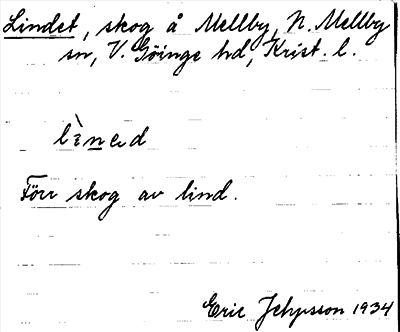 Lindet, skog å Mellby, N. Mellby
sn, V. Göinge hd, Krist. l.
Förr skog av lind.
Eric 1934